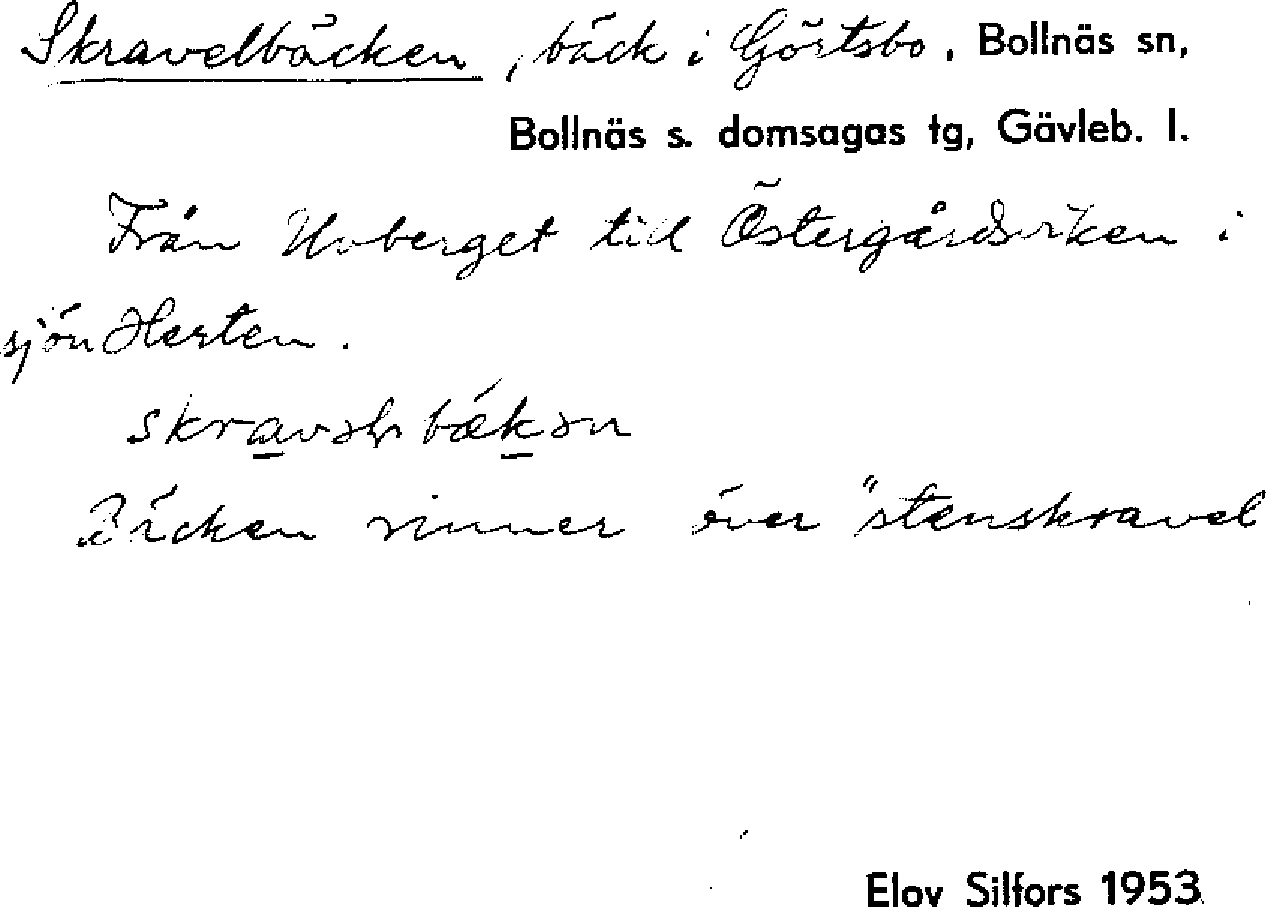 Skravelbäcken, bäck i Görtsbo, Bollnäs sn,
Bollnäs s. domsagas tg, Gävleb. l.
Från Hoberget till Östergårdsviken i
sjön Herten.
bækən
Bäcken rinner över "stenskravel
Elov Silfors 1953